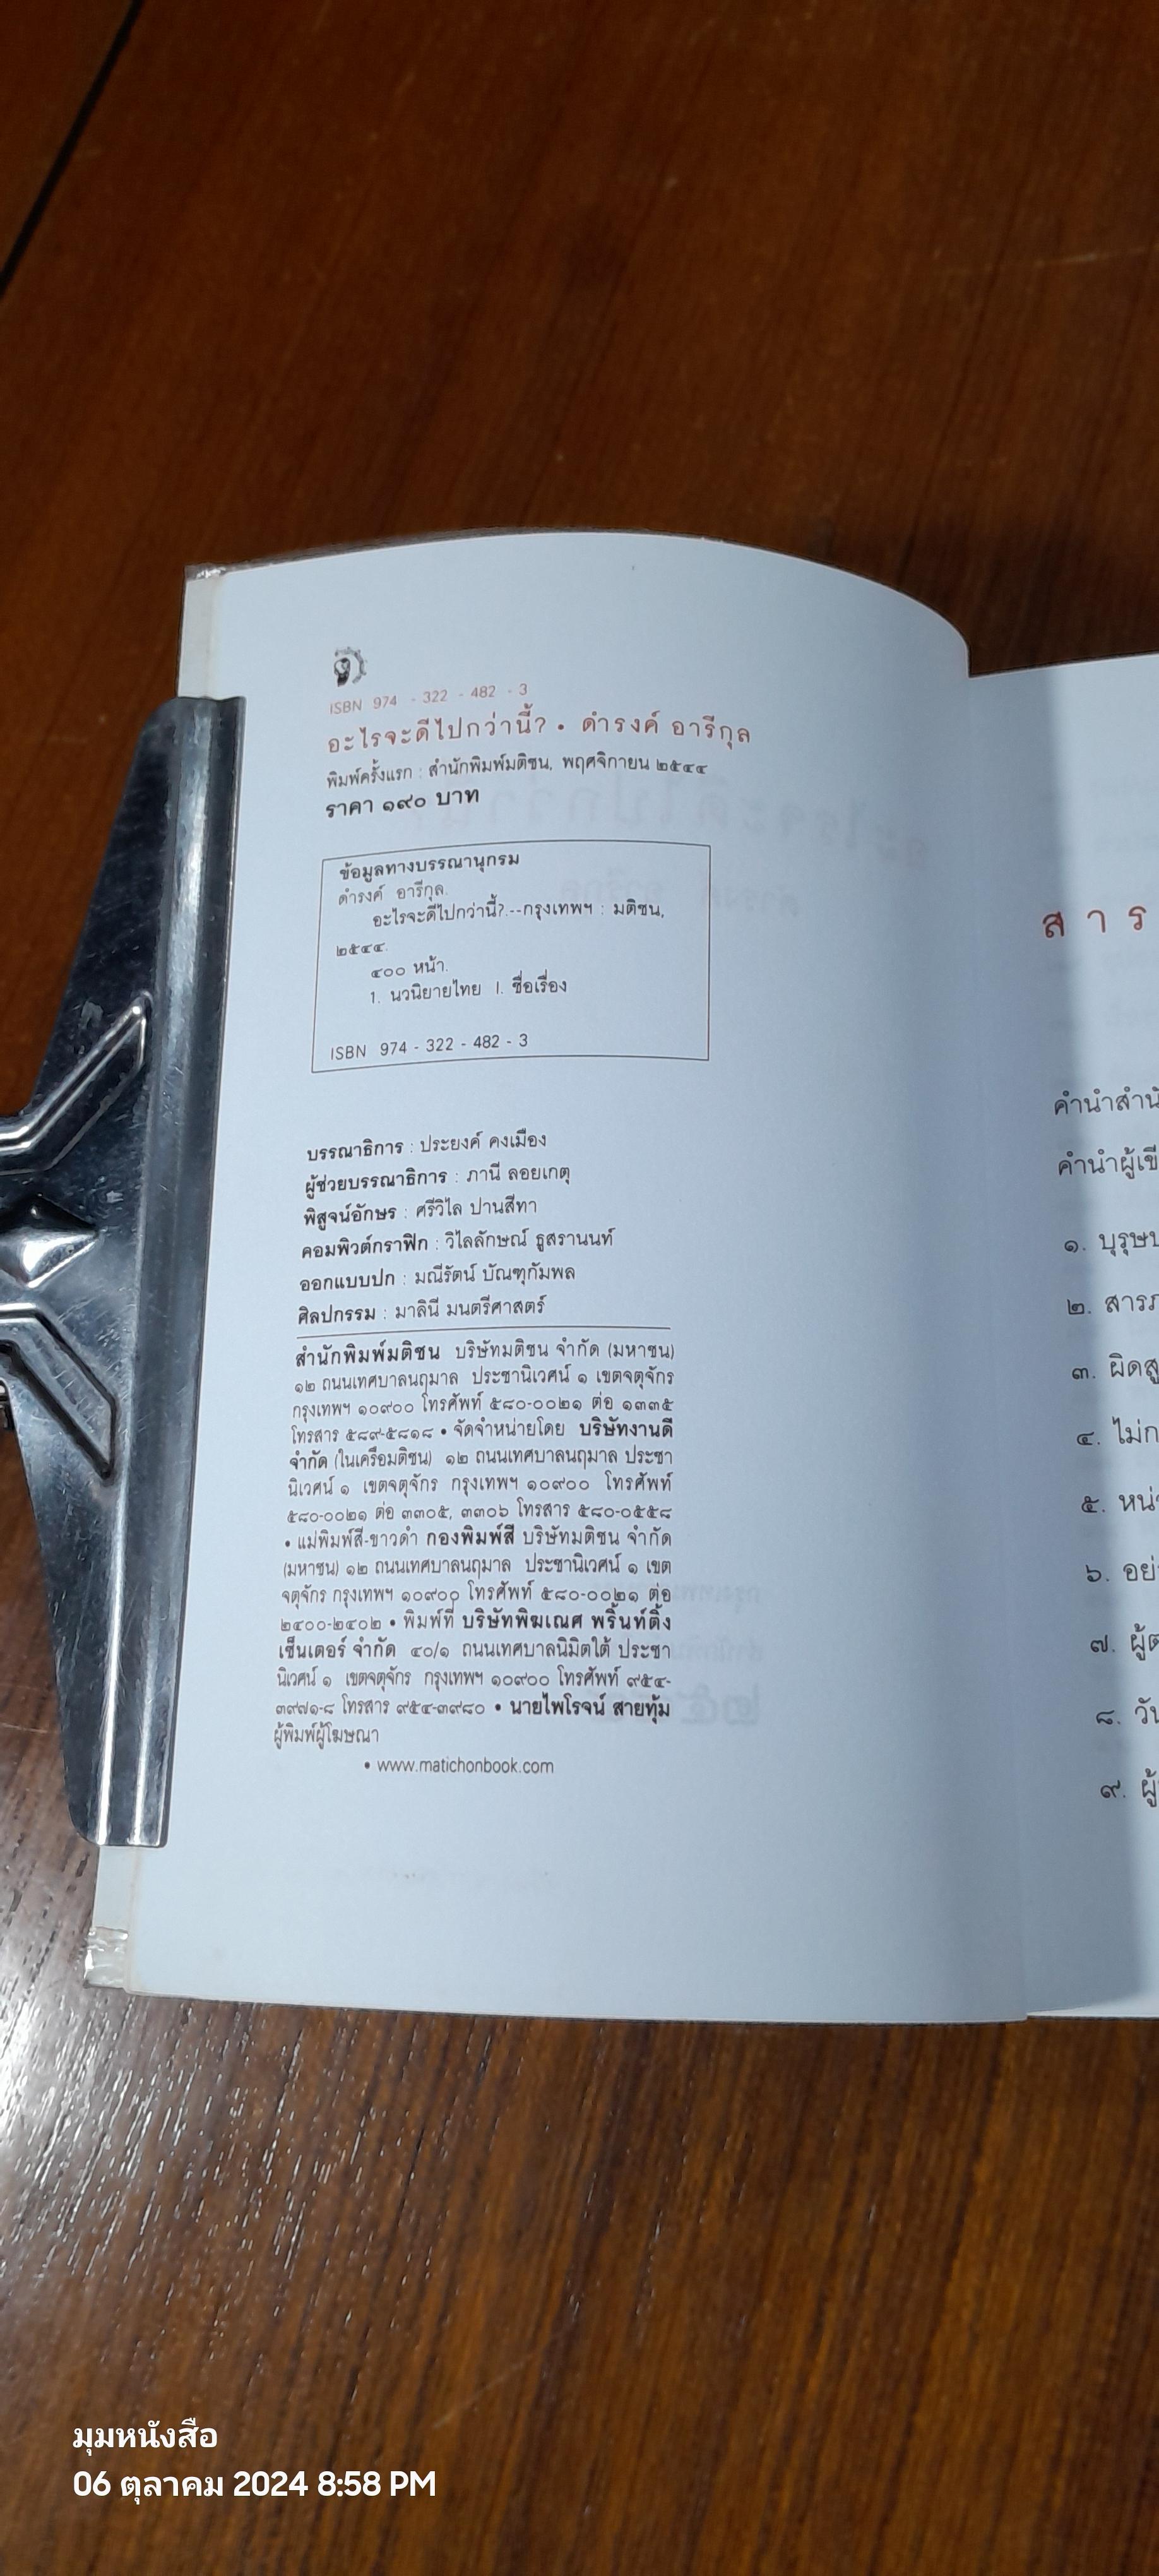 ISBN 974 - 322 - 482 - 3
อะไรจะดีไปกว่านี้? • ดำรงค์ อารีกุล
พิมพ์ครั้งแรก : สำนักพิมพ์มติชน, พฤศจิกายน ๒๕๔๔
ราคา ๑๙๐ บาท
ข้อมูลทางบรรณานุกรม
ดำรงค์ อารีกุล.
อะไรจะดีไปกว่านี้?.--กรุงเทพฯ : มติชน,
๒๕๔๔.
๔๐๐ หน้า.
1. นวนิยายไทย I. ชื่อเรื่อง
ISBN 974 - 322 - 482 - 3
บรรณาธิการ : ประยงค์ คงเมือง
ผู้ช่วยบรรณาธิการ : ภานี ลอยเกตุ
พิสูจน์อักษร : ศรีวิไล ปานสีทา
คอมพิวต์กราฟิก : วิไลลักษณ์ ธูสรานนท์
ออกแบบปก : มณีรัตน์ บัณฑุกัมพล
ศิลปกรรม : มาลินี มนตรีศาสตร์
สำนักพิมพ์มติชน บริษัทมติชน จำกัด (มหาชน)
๑๒ ถนนเทศบาลนฤมาล ประชานิเวศน์ ๑ เขตจตุจักร
กรุงเทพฯ ๑๐๙๐๐ โทรศัพท์ ๕๘๐-๐๐๒๑ ต่อ ๑๓๓๕
โทรสาร ๕๘๙-๕๘๑๘ • จัดจำหน่ายโดย บริษัทงานดี
จำกัด (ในเครือมติชน) ๑๒ ถนนเทศบาลนฤมาล ประชา
นิเวศน์ ๑ เขตจตุจักร กรุงเทพฯ ๑๐๙๐๐ โทรศัพท์
๕๘๐-๐๐๒๑ ต่อ ๓๓๐๕, ๓๓๐๖ โทรสาร ๕๘๐-๐๕๕๘
• แม่พิมพ์สี-ขาวดำ กองพิมพ์สี บริษัทมติชน จำกัด
(มหาชน) ๑๒ ถนนเทศบาลนฤมาล ประชานิเวศน์ ๑ เขต
จตุจักร กรุงเทพฯ ๑๐๙๐๐ โทรศัพท์ ๕๘๐-๐๐๒๑ ต่อ
๒๔๐๐-๒๔๐๒ • พิมพ์ที่ บริษัทพิฆเณศ พริ้นท์ติ้ง
เซ็นเตอร์ จำกัด ๔๐/๑ ถนนเทศบาลนิมิตใต้ ประชา
นิเวศน์ ๑ เขตจตุจักร กรุงเทพฯ ๑๐๙๐๐ โทรศัพท์ ๙๕๔-
๓๙๗๑-๘ โทรสาร ๙๕๔-๓๙๘๐ • นายไพโรจน์ สายทุ้ม
ผู้พิมพ์ผู้โฆษณา
• www.matichonbook.com
สาร
คำนำสำนั
คำนำผู้เขี
๑. บุรุษ
๒. สารภ
๓. ผิดสู
๔. ไม่ก
๕. หน่
๖. อย่
๗. ผู้ต
๘. วัน
๙. ผู้
มุมหนังสือ
06 ตุลาคม 2024 8:58 PM